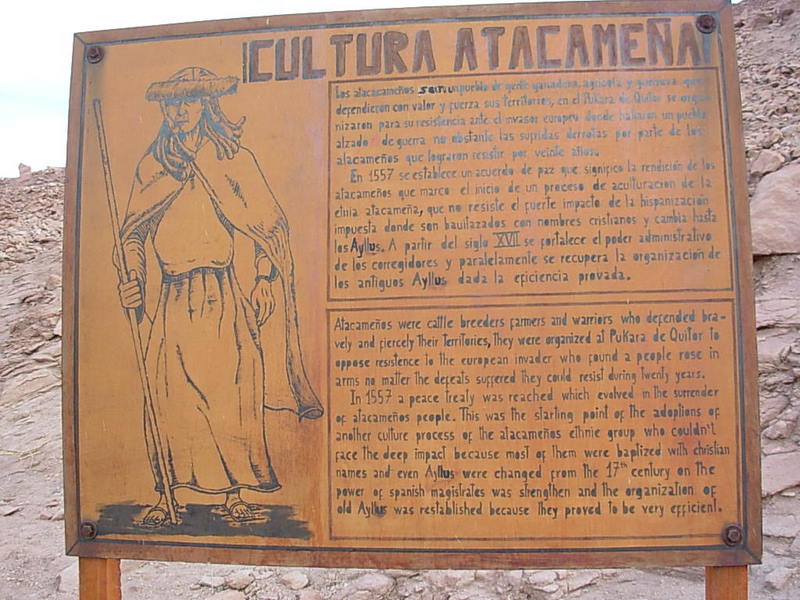 CULTURA ATACAMEÑA
Los atacacameños son un pueblo de gente ganadera, agricola y guerrera que
defendieron con valor y fuerza sus territorios, en el Pukara de Quitor se orga-
nizaron para su resistencia ante el invasor europeo donde hallaron un pueblo
alzado de guerra no obstante las sufridas derrotas por parte de los
atacameños que lograron resistir por veinte años.
En 1557 se establece un acuerdo de paz que significo la rendición de los
atacameños que marco el inicio de un proceso de aculturación de la
etnia atacameña, que no resiste el fuerte impacto de la hispanización
impuesta donde son bautizados con nombres cristianos y cambia hasta
los Ayllus. A partir del siglo XVII se fortalece el poder administrativo
de los corregidores y paralelamente se recupera la organización de
los antiguos Ayllus dada la eficiencia provada.
Atacameños were cattle breeders farmers and warriors who defended bra-
vely and fiercely their territories, They were organized at Pukara de Quitor to
oppose resistence to the european invader who found a people rose in
arms no matter the defeats suffered they could resist during twenty years.
In 1557 a peace treaty was reached which evolved in the surrender
of atacameños people. This was the starting point of the adoptions of
another culture process of the atacameños ethnie group who couldn't
face the deep impact because most of them were baptized with christian
names and even Ayllus were changed from the 17th century on the
power of spanish magistrates was strengthen and the organization of
old Ayllus was restablished because they proved to be very efficient.